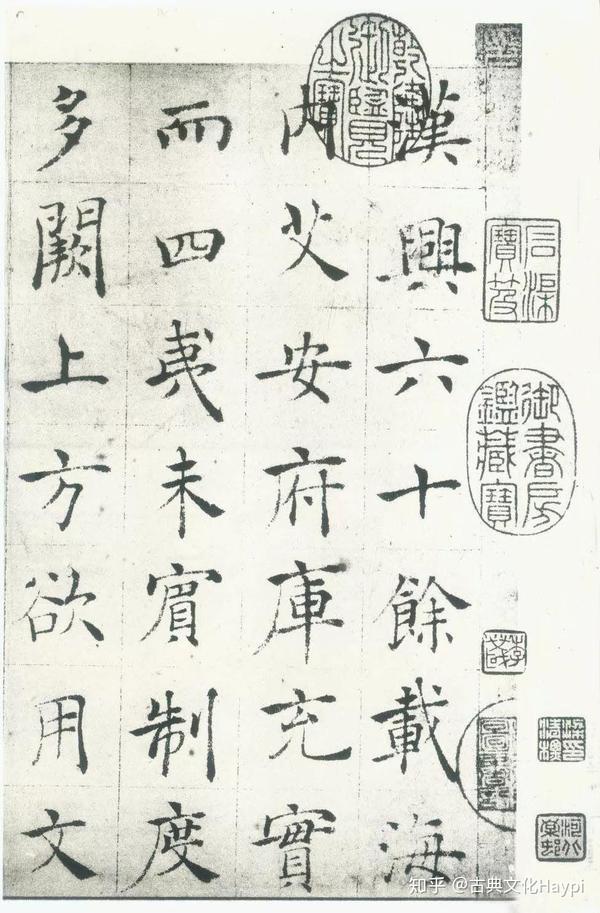 御書房
鑑藏寶
石渠
寶笈
乾隆
御覽
之寶
漢興六十餘載海
内艾安府庫充實
而四夷未賔制度
多闕上方欲用文
知乎 @古典文化Haypi